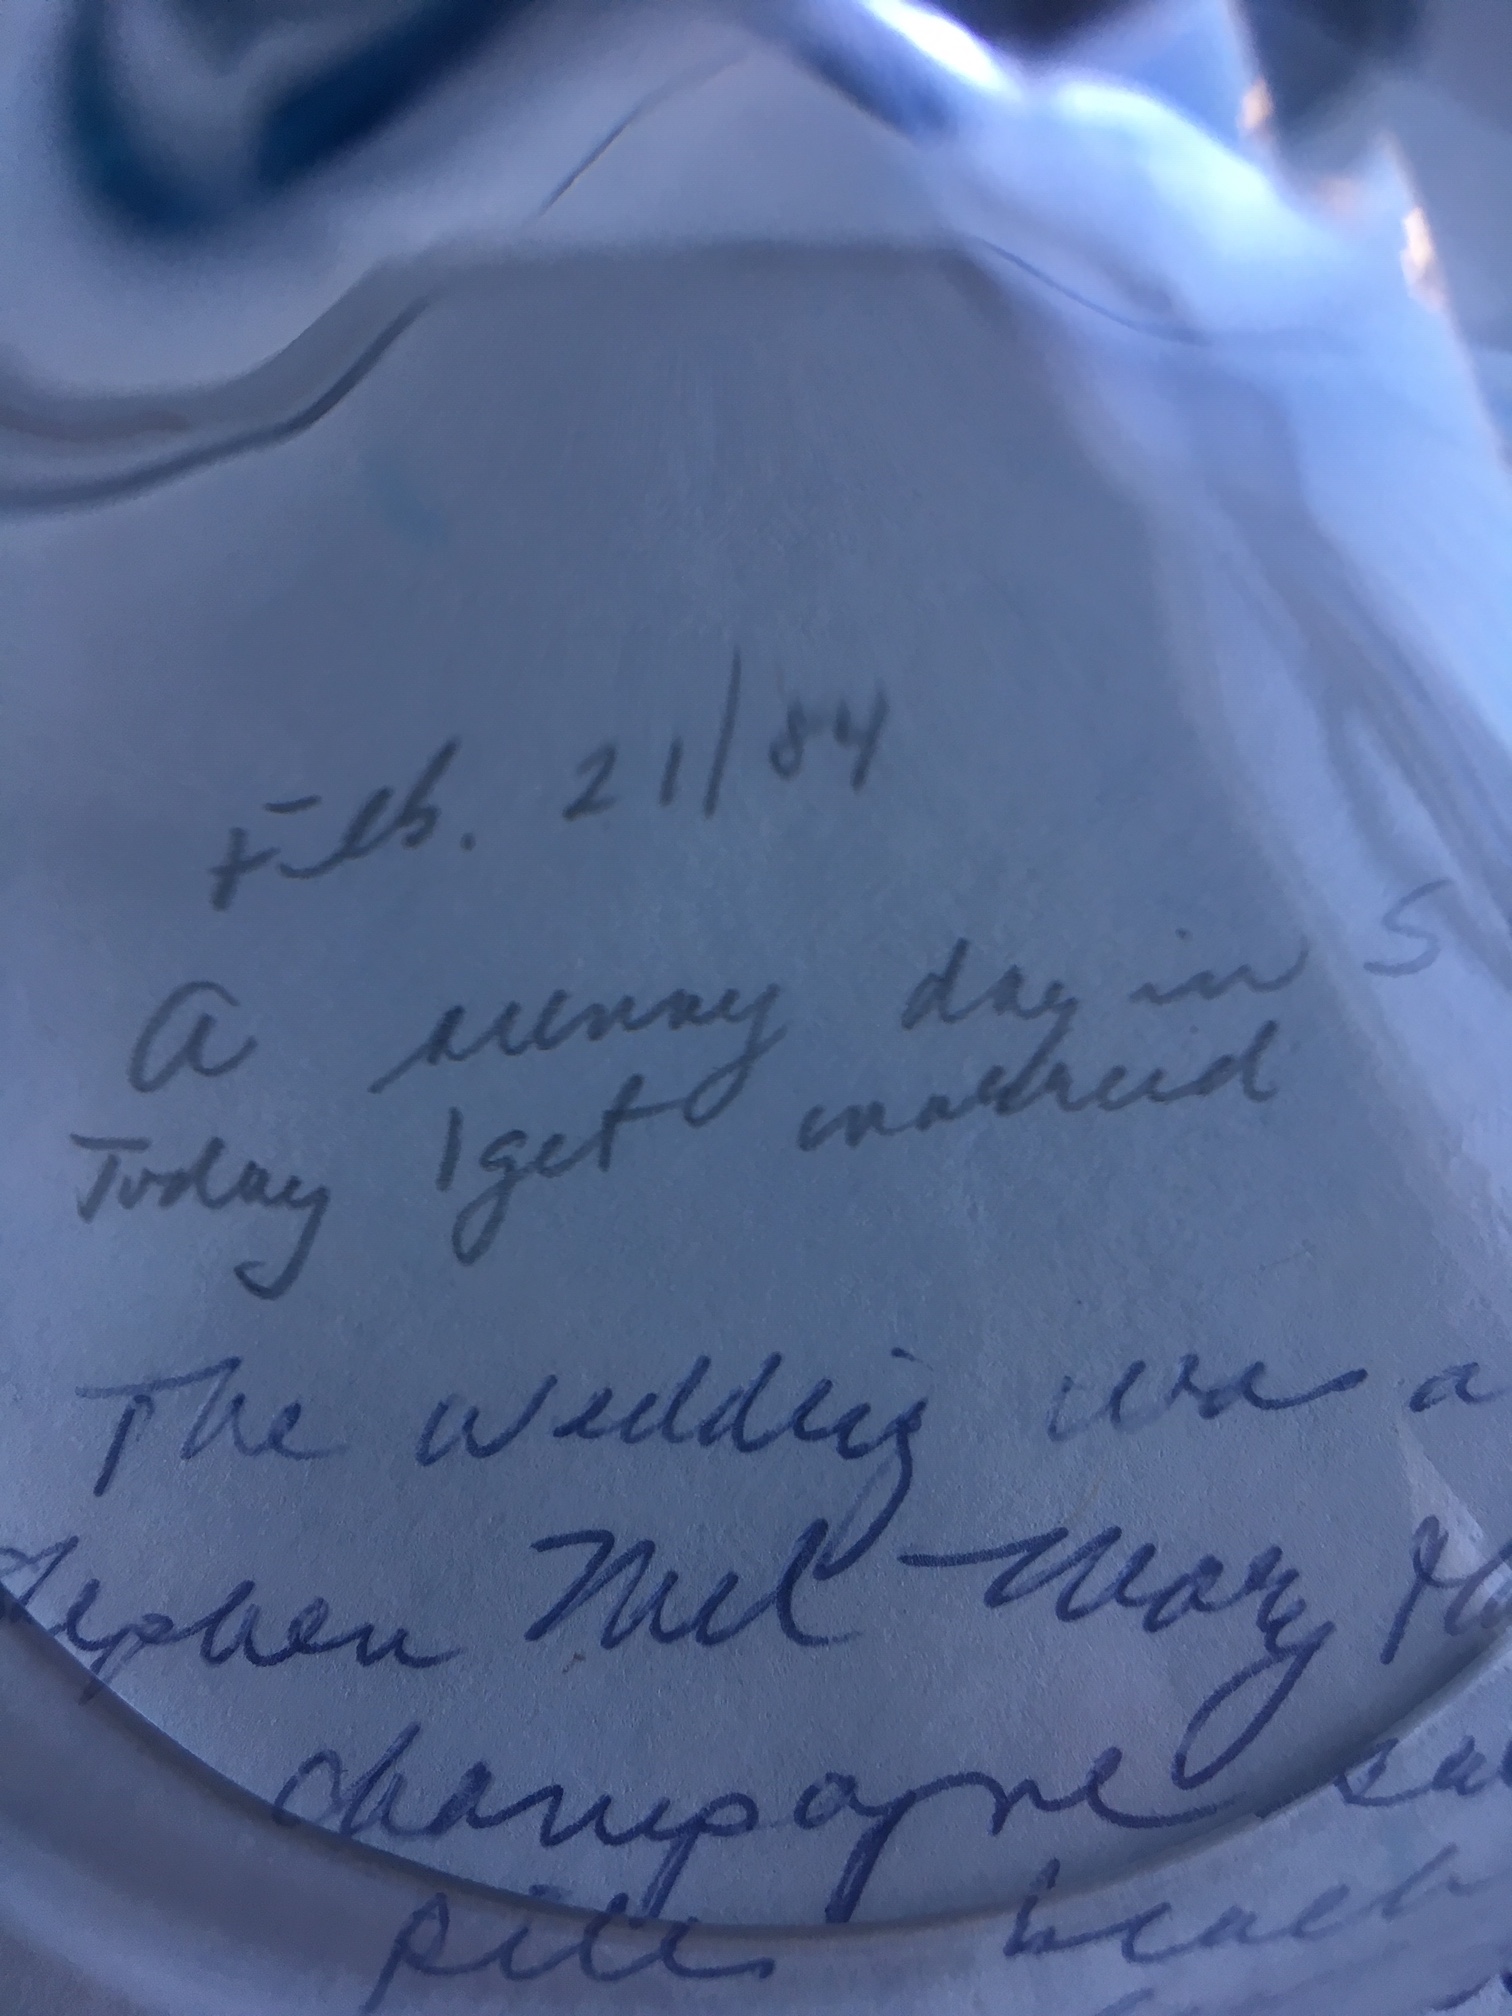 Feb. 21/84
A sunny day in S
Today I get married
The wedding was a
Stephen Mel - Mary
champagne
pills